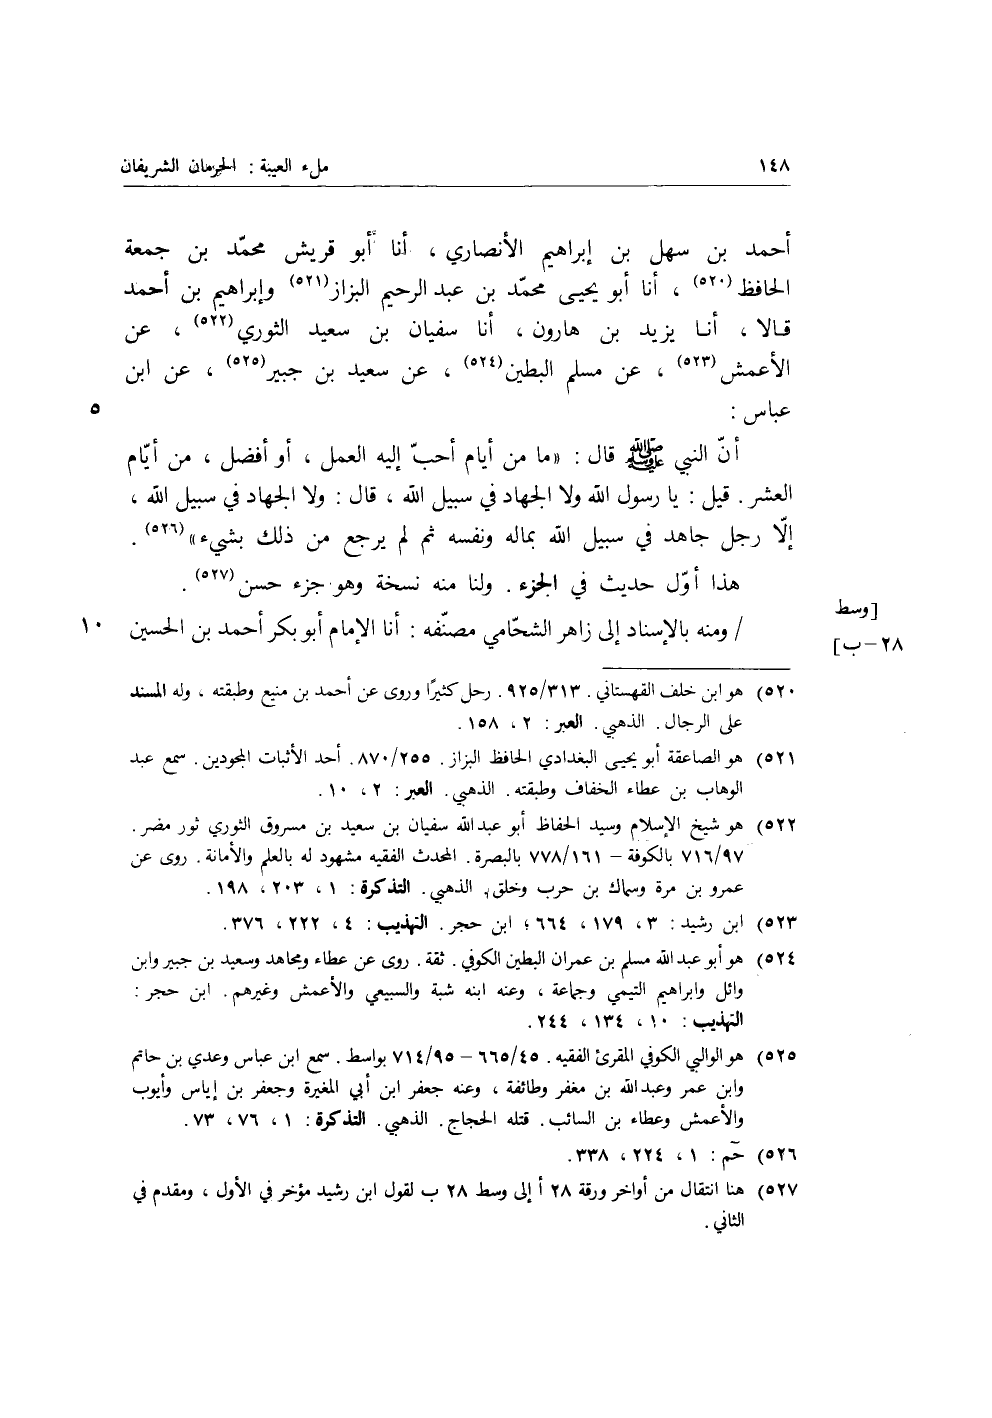 ١٤٨ ملء العيبة : الحرمان الشريفان
أحمد بن سهل بن إبراهيم الأنصاري ، أنا أبو قريش محمّد بن جمعة
الحافظ(٥٢٠) ، أنا أبو يحيى محمّد بن عبد الرحيم البزاز(٥٢١) وإبراهيم بن أحمد
قالا ، أنا يزيد بن هارون ، أنا سفيان بن سعيد الثوري(٥٢٢) ، عن
الأعمش(٥٢٣) ، عن مسلم البطين(٥٢٤) ، عن سعيد بن جبير(٥٢٥) ، عن ابن
عباس : ٥
أنّ النبي ﷺ قال : «ما من أيام أحبّ إليه العمل ، أو أفضل ، من أيّام
العشر . قيل : يا رسول الله ولا الجهاد في سبيل الله ، قال : ولا الجهاد في سبيل الله ،
إلّا رجل جاهد في سبيل الله بماله ونفسه ثم لم يرجع من ذلك بشيء»(٥٢٦) .
هذا أوّل حديث في الجزء . ولنا منه نسخة وهو جزء حسن(٥٢٧) .
[وسط
٢٨-ب]
/ ومنه بالإسناد إلى زاهر الشحّامي مصنّفه : أنا الإمام أبو بكر أحمد بن الحسين ١٠
٥٢٠) هو ابن خلف القهستاني . ٩٢٥/٣١٣ . رحل كثيرًا وروى عن أحمد بن منيع وطبقته ، وله المسند
على الرجال . الذهبي . العبر : ٢ ، ١٥٨ .
٥٢١) هو الصاعقة أبو يحيى البغدادي الحافظ البزاز . ٨٧٠/٢٥٥ . أحد الأثبات المجودين . سمع عبد
الوهاب بن عطاء الخفاف وطبقته . الذهبي . العبر : ٢ ، ١٠ .
٥٢٢) هو شيخ الإسلام وسيد الحفاظ أبو عبد الله سفيان بن سعيد بن مسروق الثوري ثور مضر .
٧١٦/٩٧ بالكوفة – ٧٧٨/١٦١ بالبصرة . المحدث الفقيه مشهود له بالعلم والأمانة . روى عن
عمرو بن مرة وسماك بن حرب وخلق . الذهبي . التذكرة : ١ ، ٢٠٣ ، ١٩٨ .
٥٢٣) ابن رشيد : ٣ ، ١٧٩ ، ٦٦٤ ؛ ابن حجر . التهذيب : ٤ ، ٢٢٢ ، ٣٧٦ .
٥٢٤) هو أبو عبد الله مسلم بن عمران البطين الكوفي . ثقة . روى عن عطاء ومجاهد وسعيد بن جبير وابن
وائل وابراهيم التيمي وجماعة ، وعنه ابنه شبة والسبيعي والأعمش وغيرهم . ابن حجر :
التهذيب : ١٠ ، ١٣٤ ، ٢٤٤ .
٥٢٥) هو الوالبي الكوفي المقرئ الفقيه . ٦٦٥/٤٥ – ٧١٤/٩٥ بواسط . سمع ابن عباس وعدي بن حاتم
وابن عمر وعبد الله بن مغفر وطائفة ، وعنه جعفر ابن أبي المغيرة وجعفر بن إياس وأيوب
والأعمش وعطاء بن السائب . قتله الحجاج . الذهبي . التذكرة : ١ ، ٧٦ ، ٧٣ .
٥٢٦) حَم : ١ ، ٢٢٤ ، ٣٣٨ .
٥٢٧) هنا انتقال من أواخر ورقة ٢٨ أ إلى وسط ٢٨ ب لقول ابن رشيد مؤخر في الأول ، ومقدم في
الثاني .